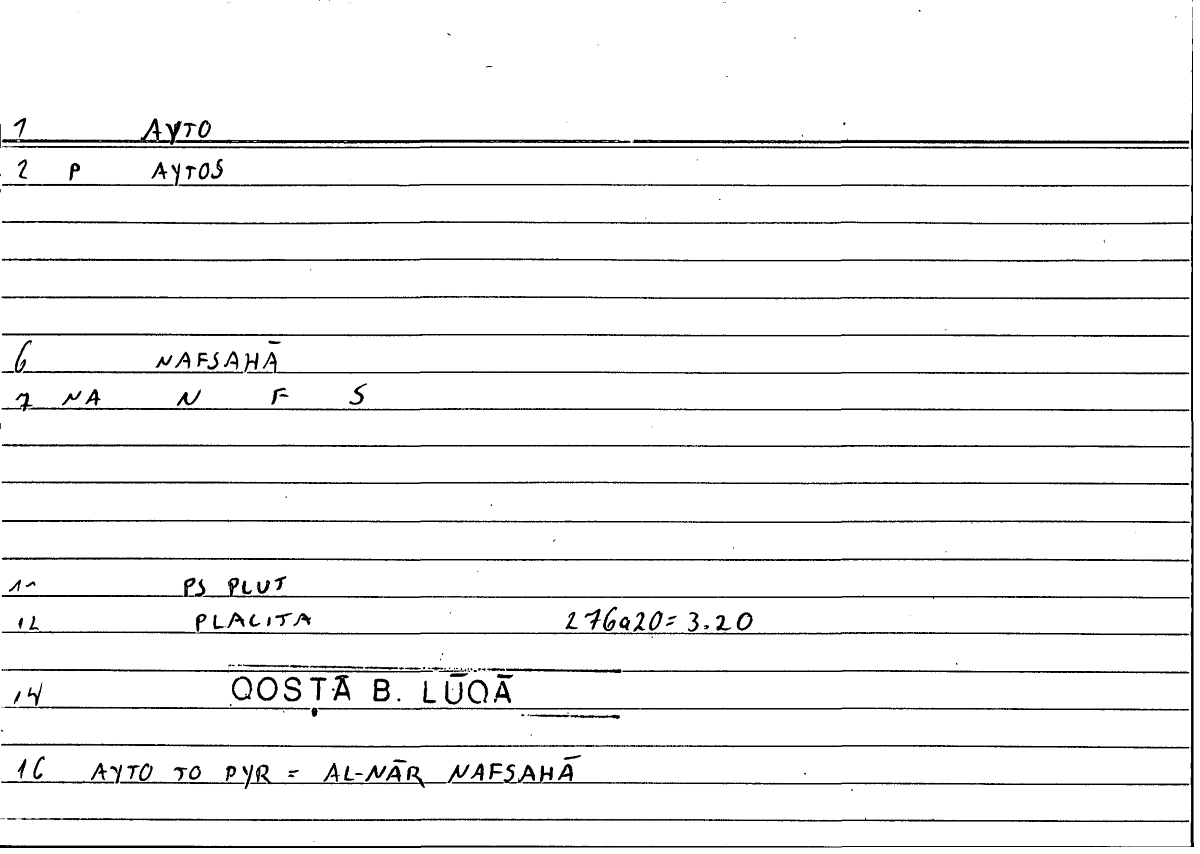 1 AYTO
2 P AYTOS
6 NAFSAHĀ
7 NA N F S
11 PS PLUT
12 PLACITA 276a20=3.20
14 QOSṬĀ B. LŪQĀ
16 AYTO TO PYR = AL-NĀR NAFSAHĀ